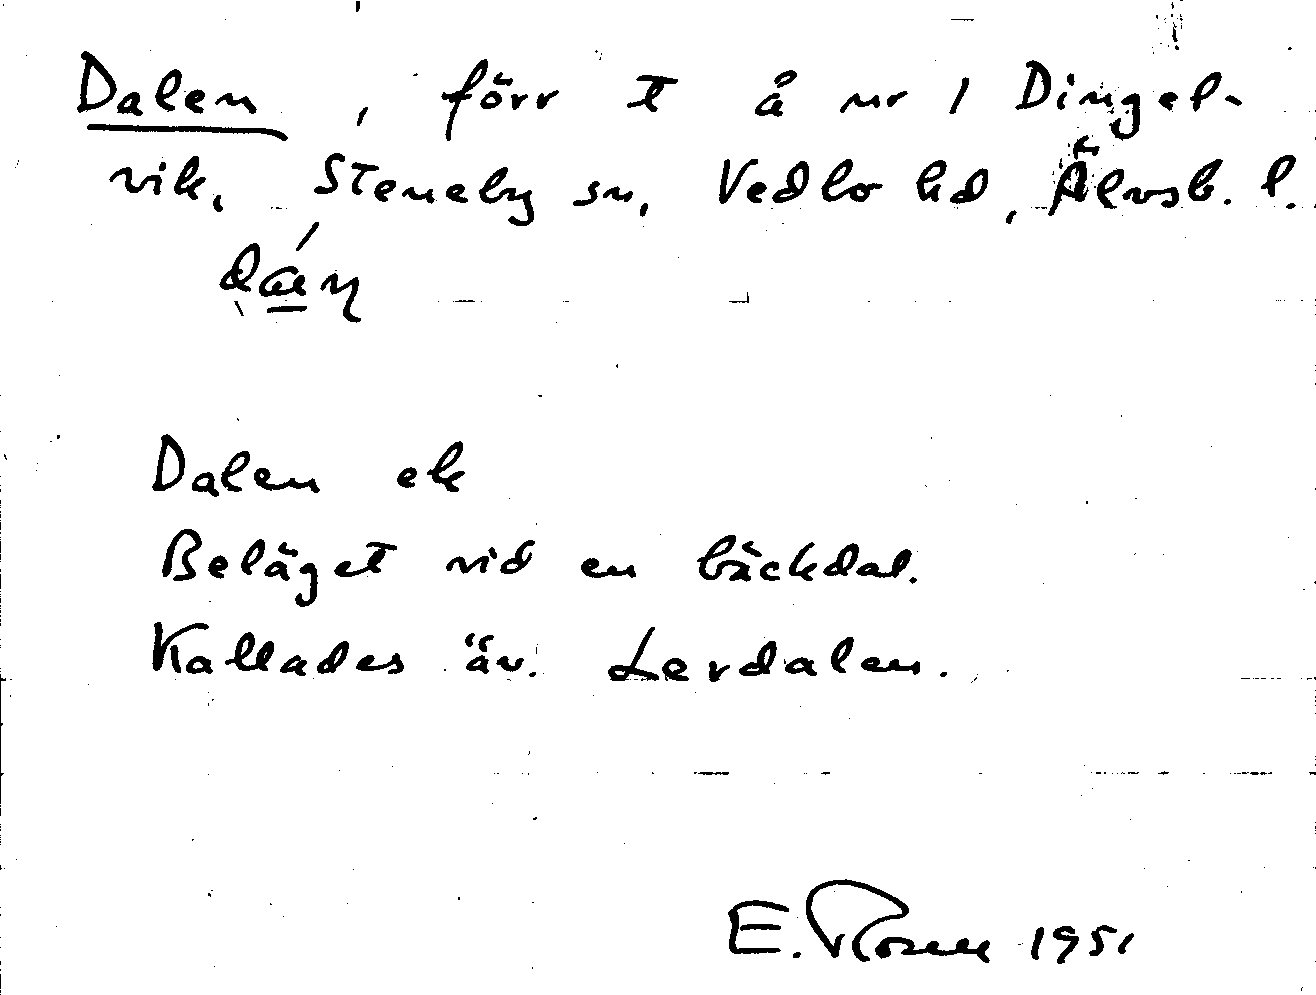 Dalen, förr t å nr 1 Dingel-
vik, Steneby sn, Vedbo hd, Älvsb. l.
Dalen ek
Beläget vid en bäckdal.
Kallades äv. Lerdalen.
E. Rosen 1951